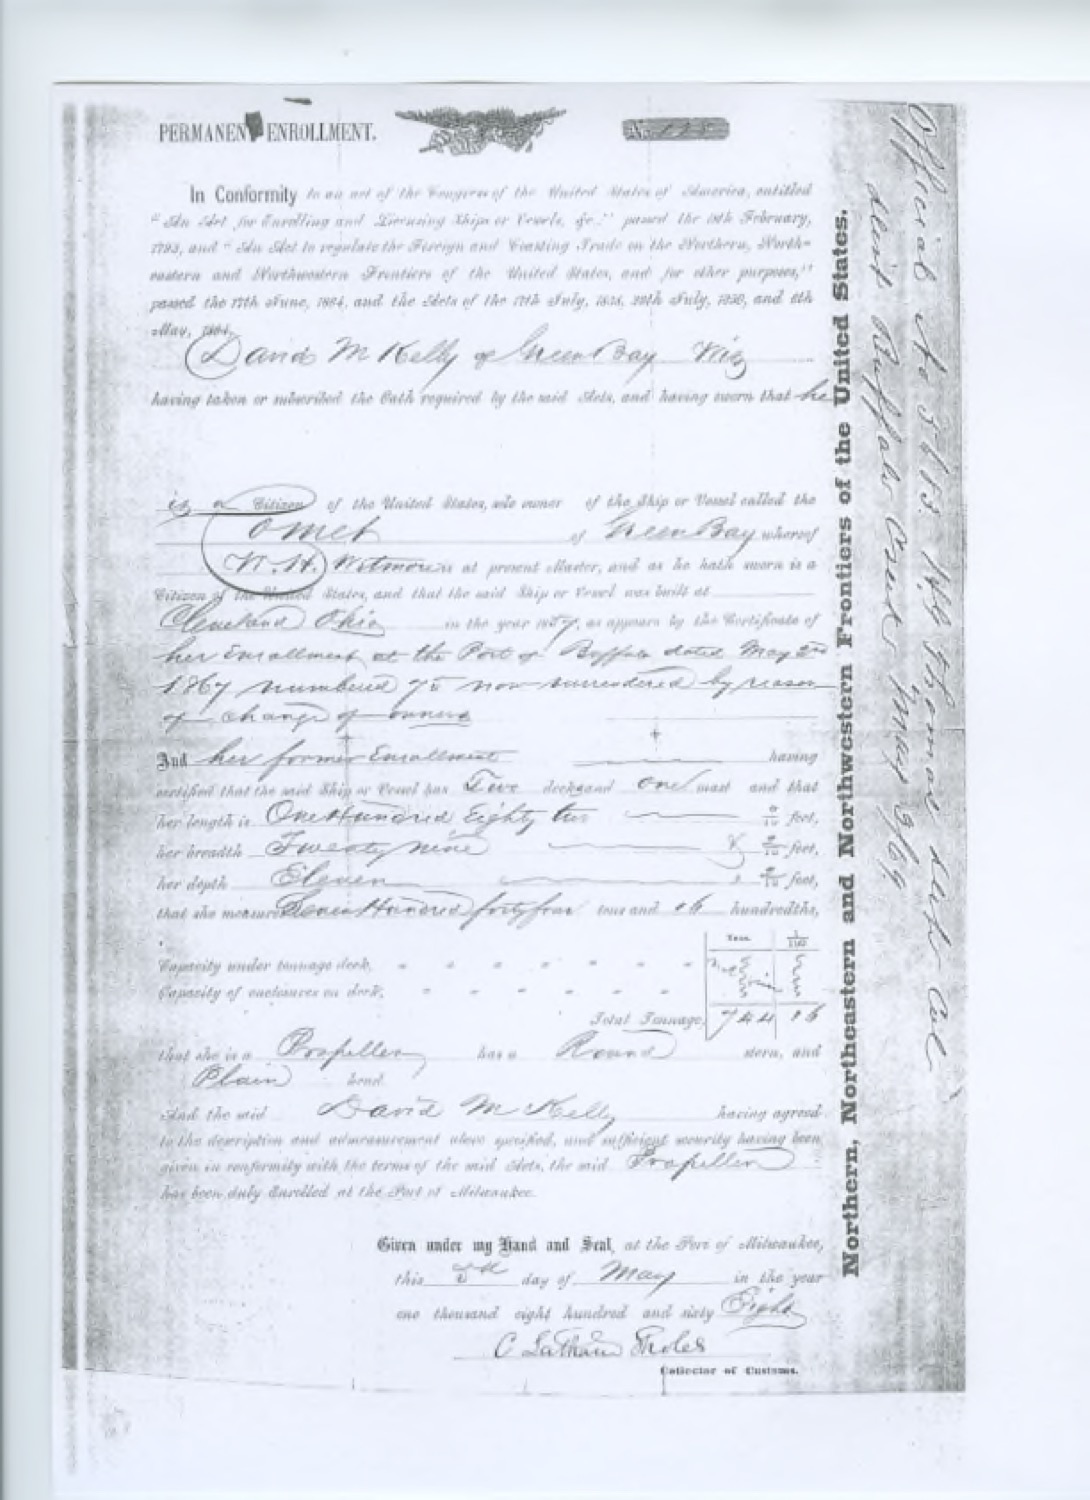 PERMANENT ENROLLMENT.
No. 128
In Conformity to an act of the Congress of the United States of America, entitled
"An Act for Enrolling and Licensing Ships or Vessels, &c." passed the 18th February,
1793, and "An Act to regulate the Foreign and Coasting Trade on the Northern, North-
eastern and Northwestern Frontiers of the United States, and for other purposes,"
passed the 17th June, 1864, and the Acts of the 17th July, 28th July, 1850, and 6th
May, 1864,
David M Kelly of Green Bay Wis
having taken or subscribed the Oath required by the said Acts, and having sworn that he
is a Citizen of the United States, sole owner of the Ship or Vessel called the
of Green Bay whereof
W. H. is at present Master, and as he hath sworn is a
Citizen of the United States, and that the said Ship or Vessel was built at
Cleveland Ohio in the year 1857, as appears by the Certificate of
her Enrollment at the Port of Buffalo dated May 2nd
1867 numbered now surrendered by reason
of change of owners
And her former Enrollment having
certified that the said Ship or Vessel has Two decks and one mast and that
her length is One Hundred Eighty two feet,
her breadth Twenty nine feet,
her depth Eleven feet,
that she measures Seven Hundred forty four tons and 06 hundredths,
Tons.
Capacity under tonnage deck,
Capacity of enclosures on deck,
Total Tonnage, 744 06
that she is a Propeller has a Round stern, and
Plain head
And the said David M Kelly having agreed
to the description and admeasurement above specified, and sufficient security having been
given in conformity with the terms of the said Acts, the said Propeller
has been duly Enrolled at the Port of Milwaukee.
Given under my Hand and Seal, at the Port of Milwaukee,
this day of May in the year
one thousand eight hundred and sixty Eight
C Latham Sholes
Collector of Customs.
Northern, Northeastern and Northwestern Frontiers of the United States.
Buffalo Creek May